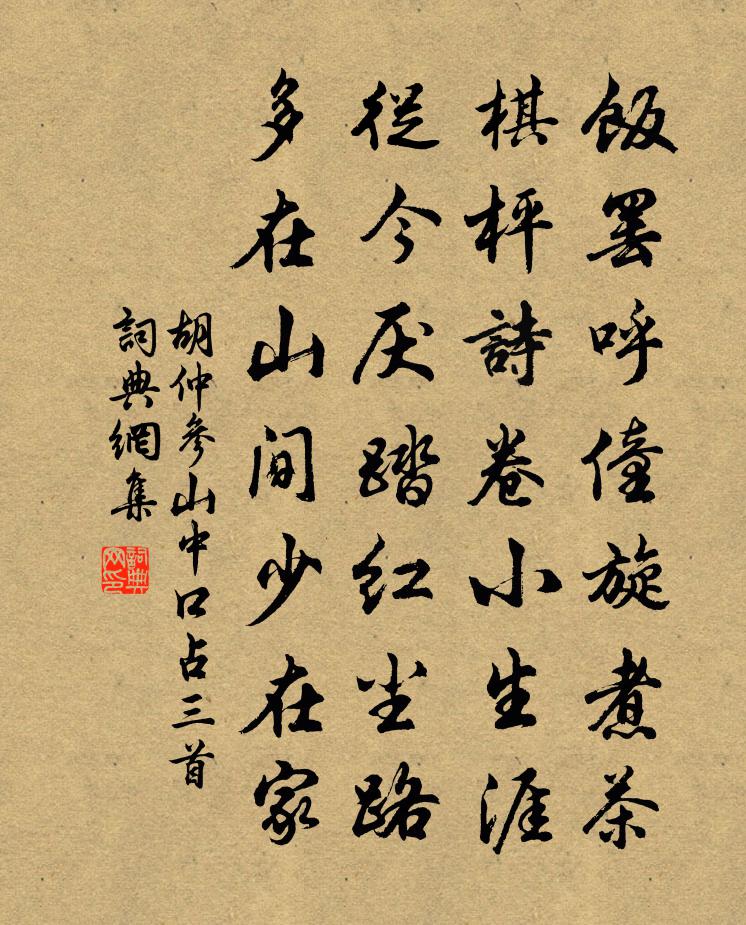 飯罷呼僮旋煮茶
棋枰詩卷小生涯
從今厌踏紅尘路
多在山間少在家
胡仲參山中口占三首
詞典網集
詞典网印